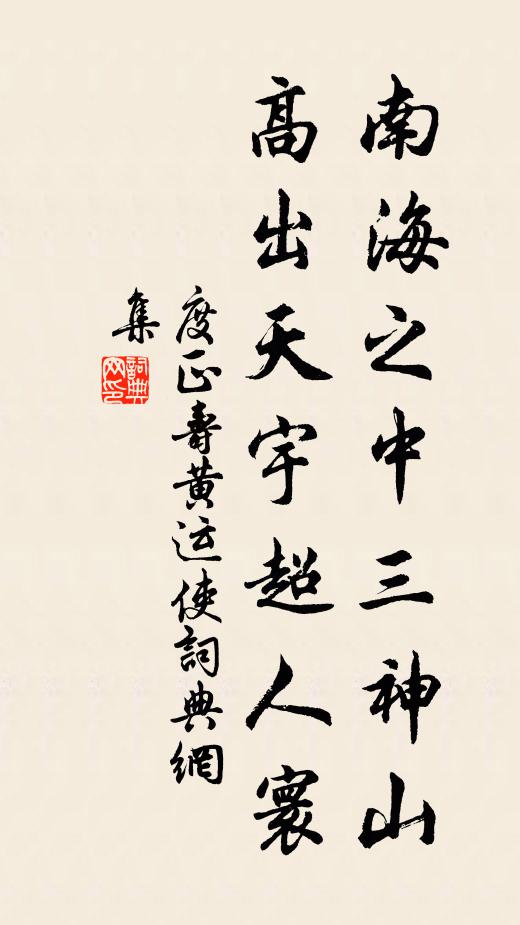 南海之中三神山
高出天宇超人寰
度正壽黃运使詞典網
集
詞典
网印